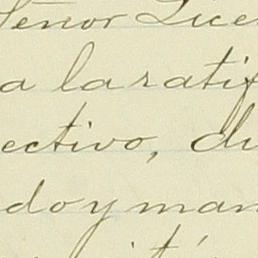 Señor Lice
a la ratif
ectivo, du
do y man